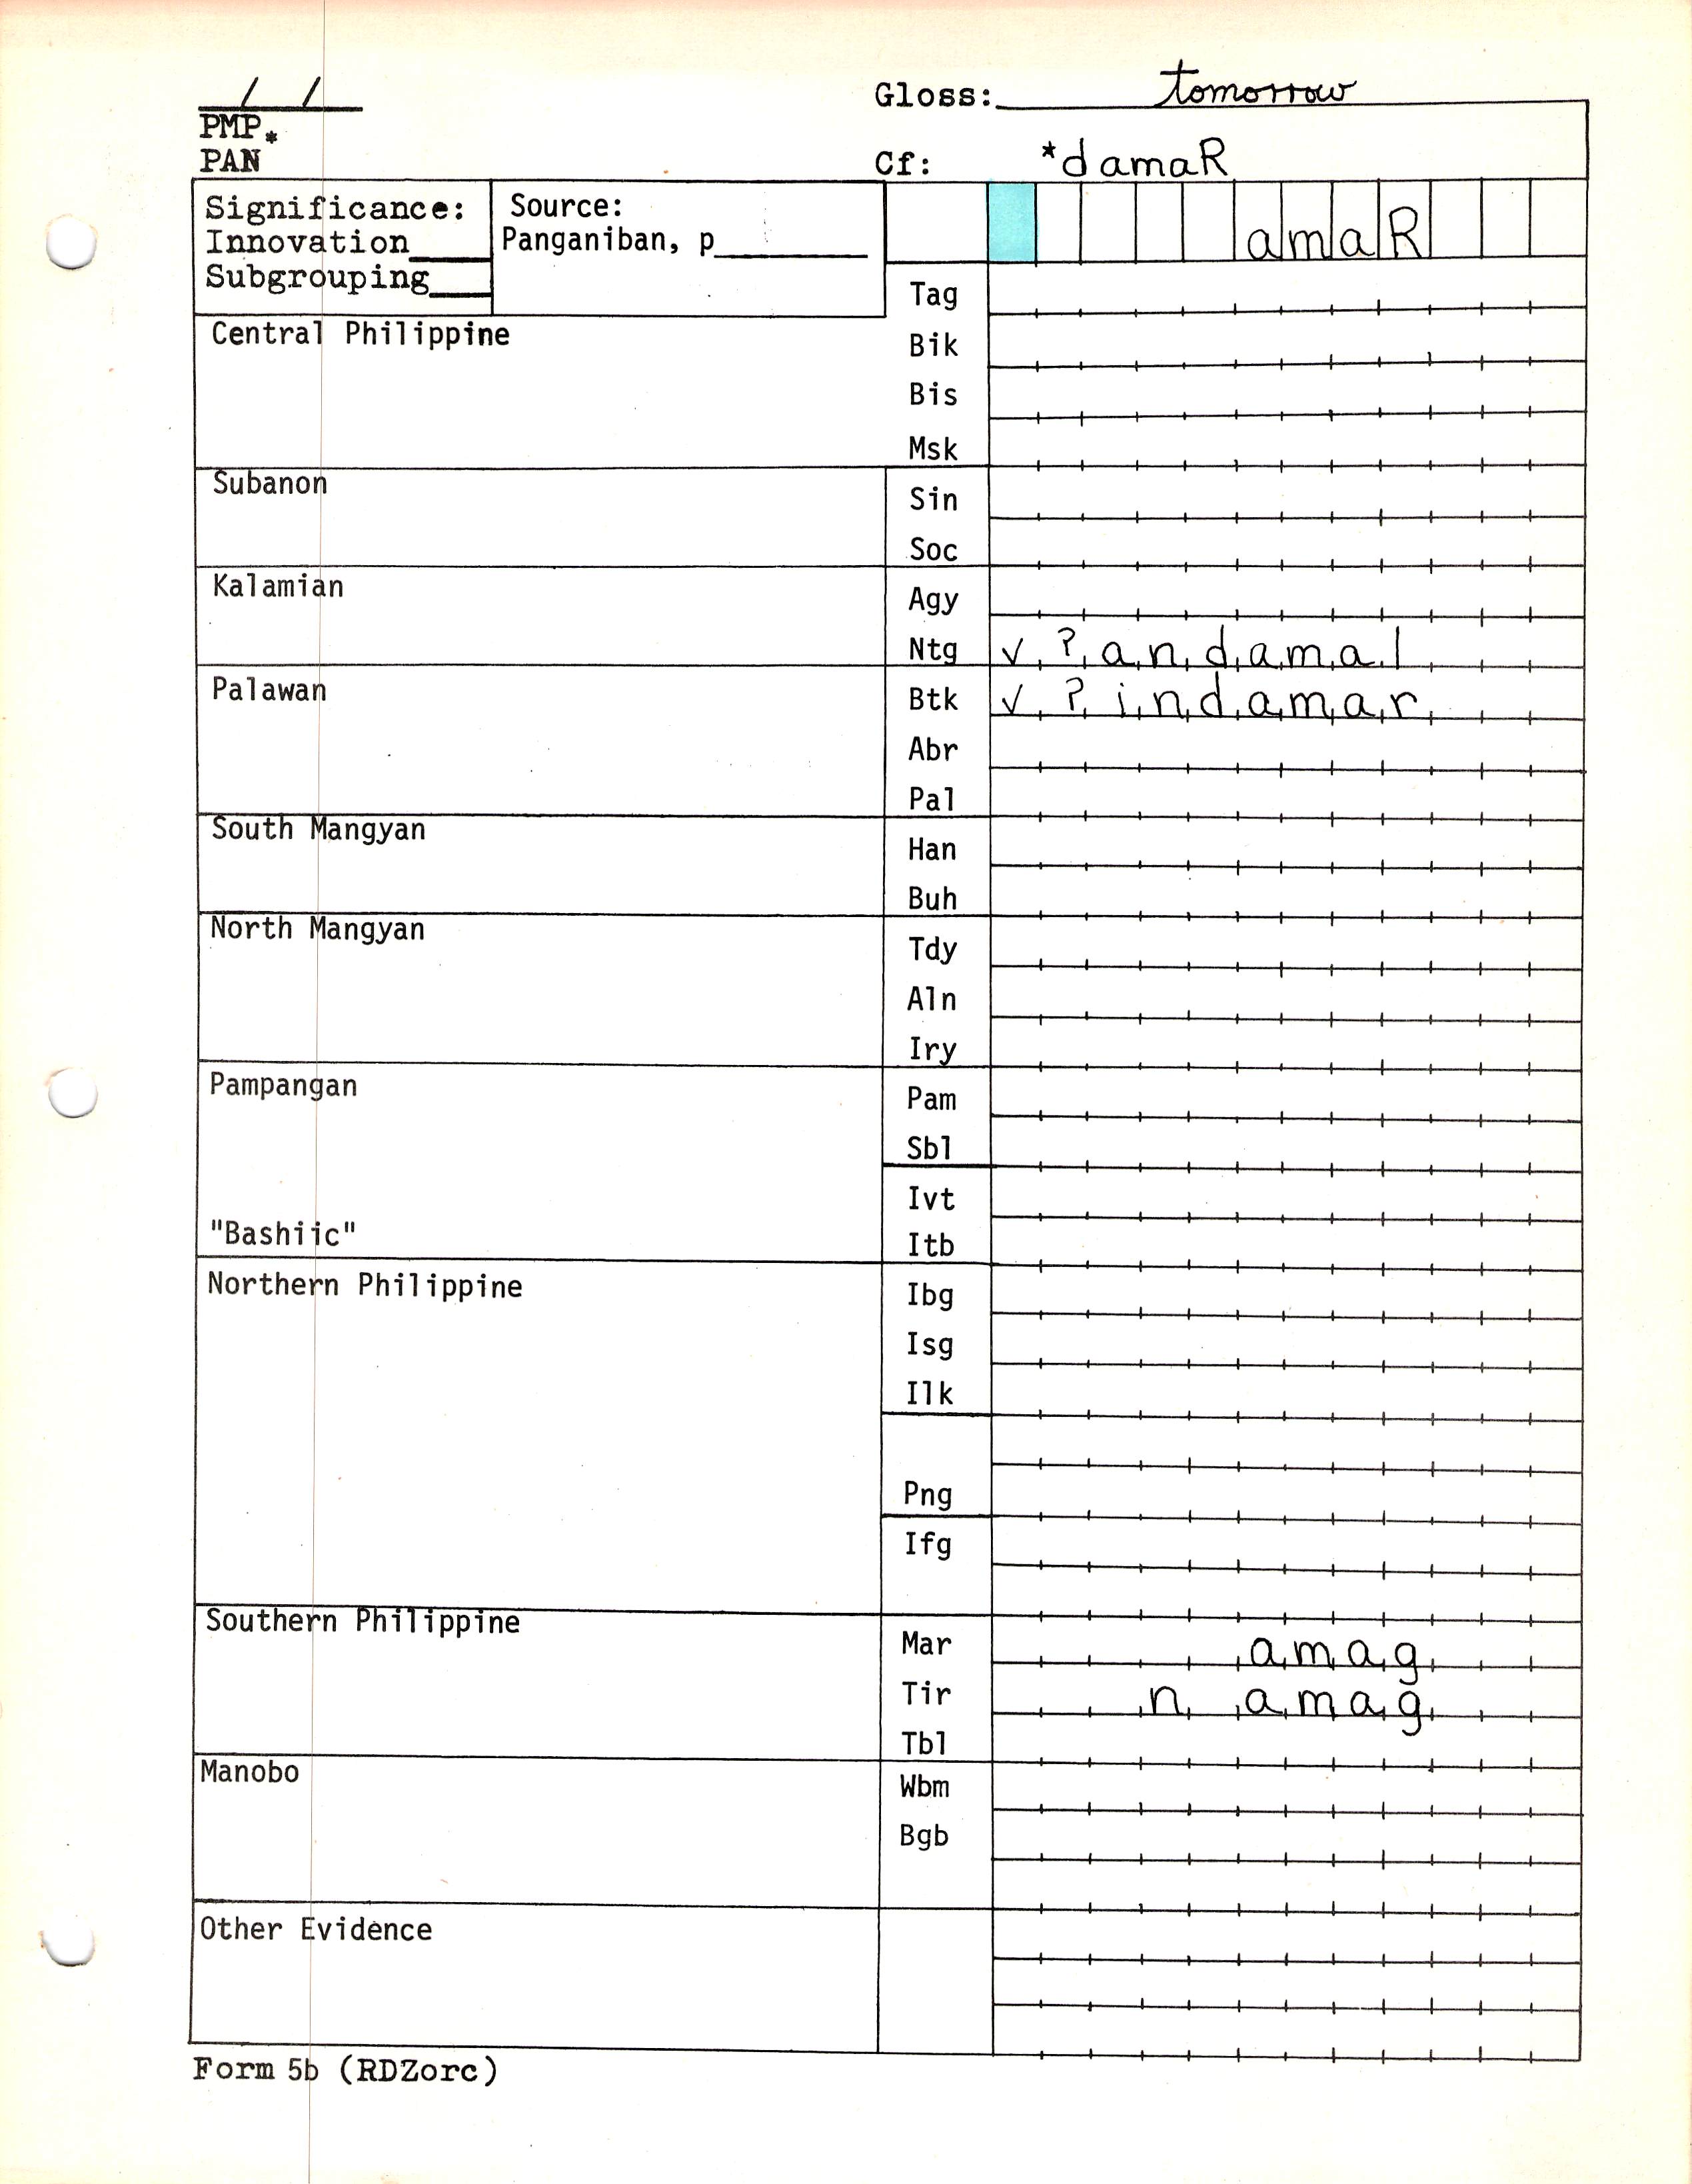 / /
Gloss: tomorrow
PMP*
PAN
Cf: *damaR
Significance:
Innovation
Subgrouping
Source:
Panganiban, p
amaR
Tag
Central Philippine
Bik
Bis
Msk
Subanon
Sin
Soc
Kalamian
Agy
Ntg √ ? andamal
Palawan
Btk √ ? indamar
Abr
Pal
South Mangyan
Han
Buh
North Mangyan
Tdy
Aln
Iry
Pampangan
Pam
Sbl
Ivt
"Bashiic"
Itb
Northern Philippine
Ibg
Isg
Ilk
Png
Ifg
Southern Philippine
Mar amag
Tir n amag
Tbl
Manobo
Wbm
Bgb
Other Evidence
Form 5b (RDZorc)